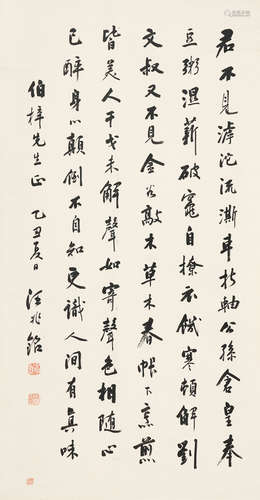 君不見滹沱流澌車折軸公孫倉皇奉
豆粥濕薪破竈自燎衣饑寒頓解劉
文叔又不見金谷敲氷草木春帳下烹煎
皆美人干戈未解聲如寄聲色相隨心
已醉身心顛倒不自知更識人間有真味
伯梓先生正 乙丑夏日 汪兆銘